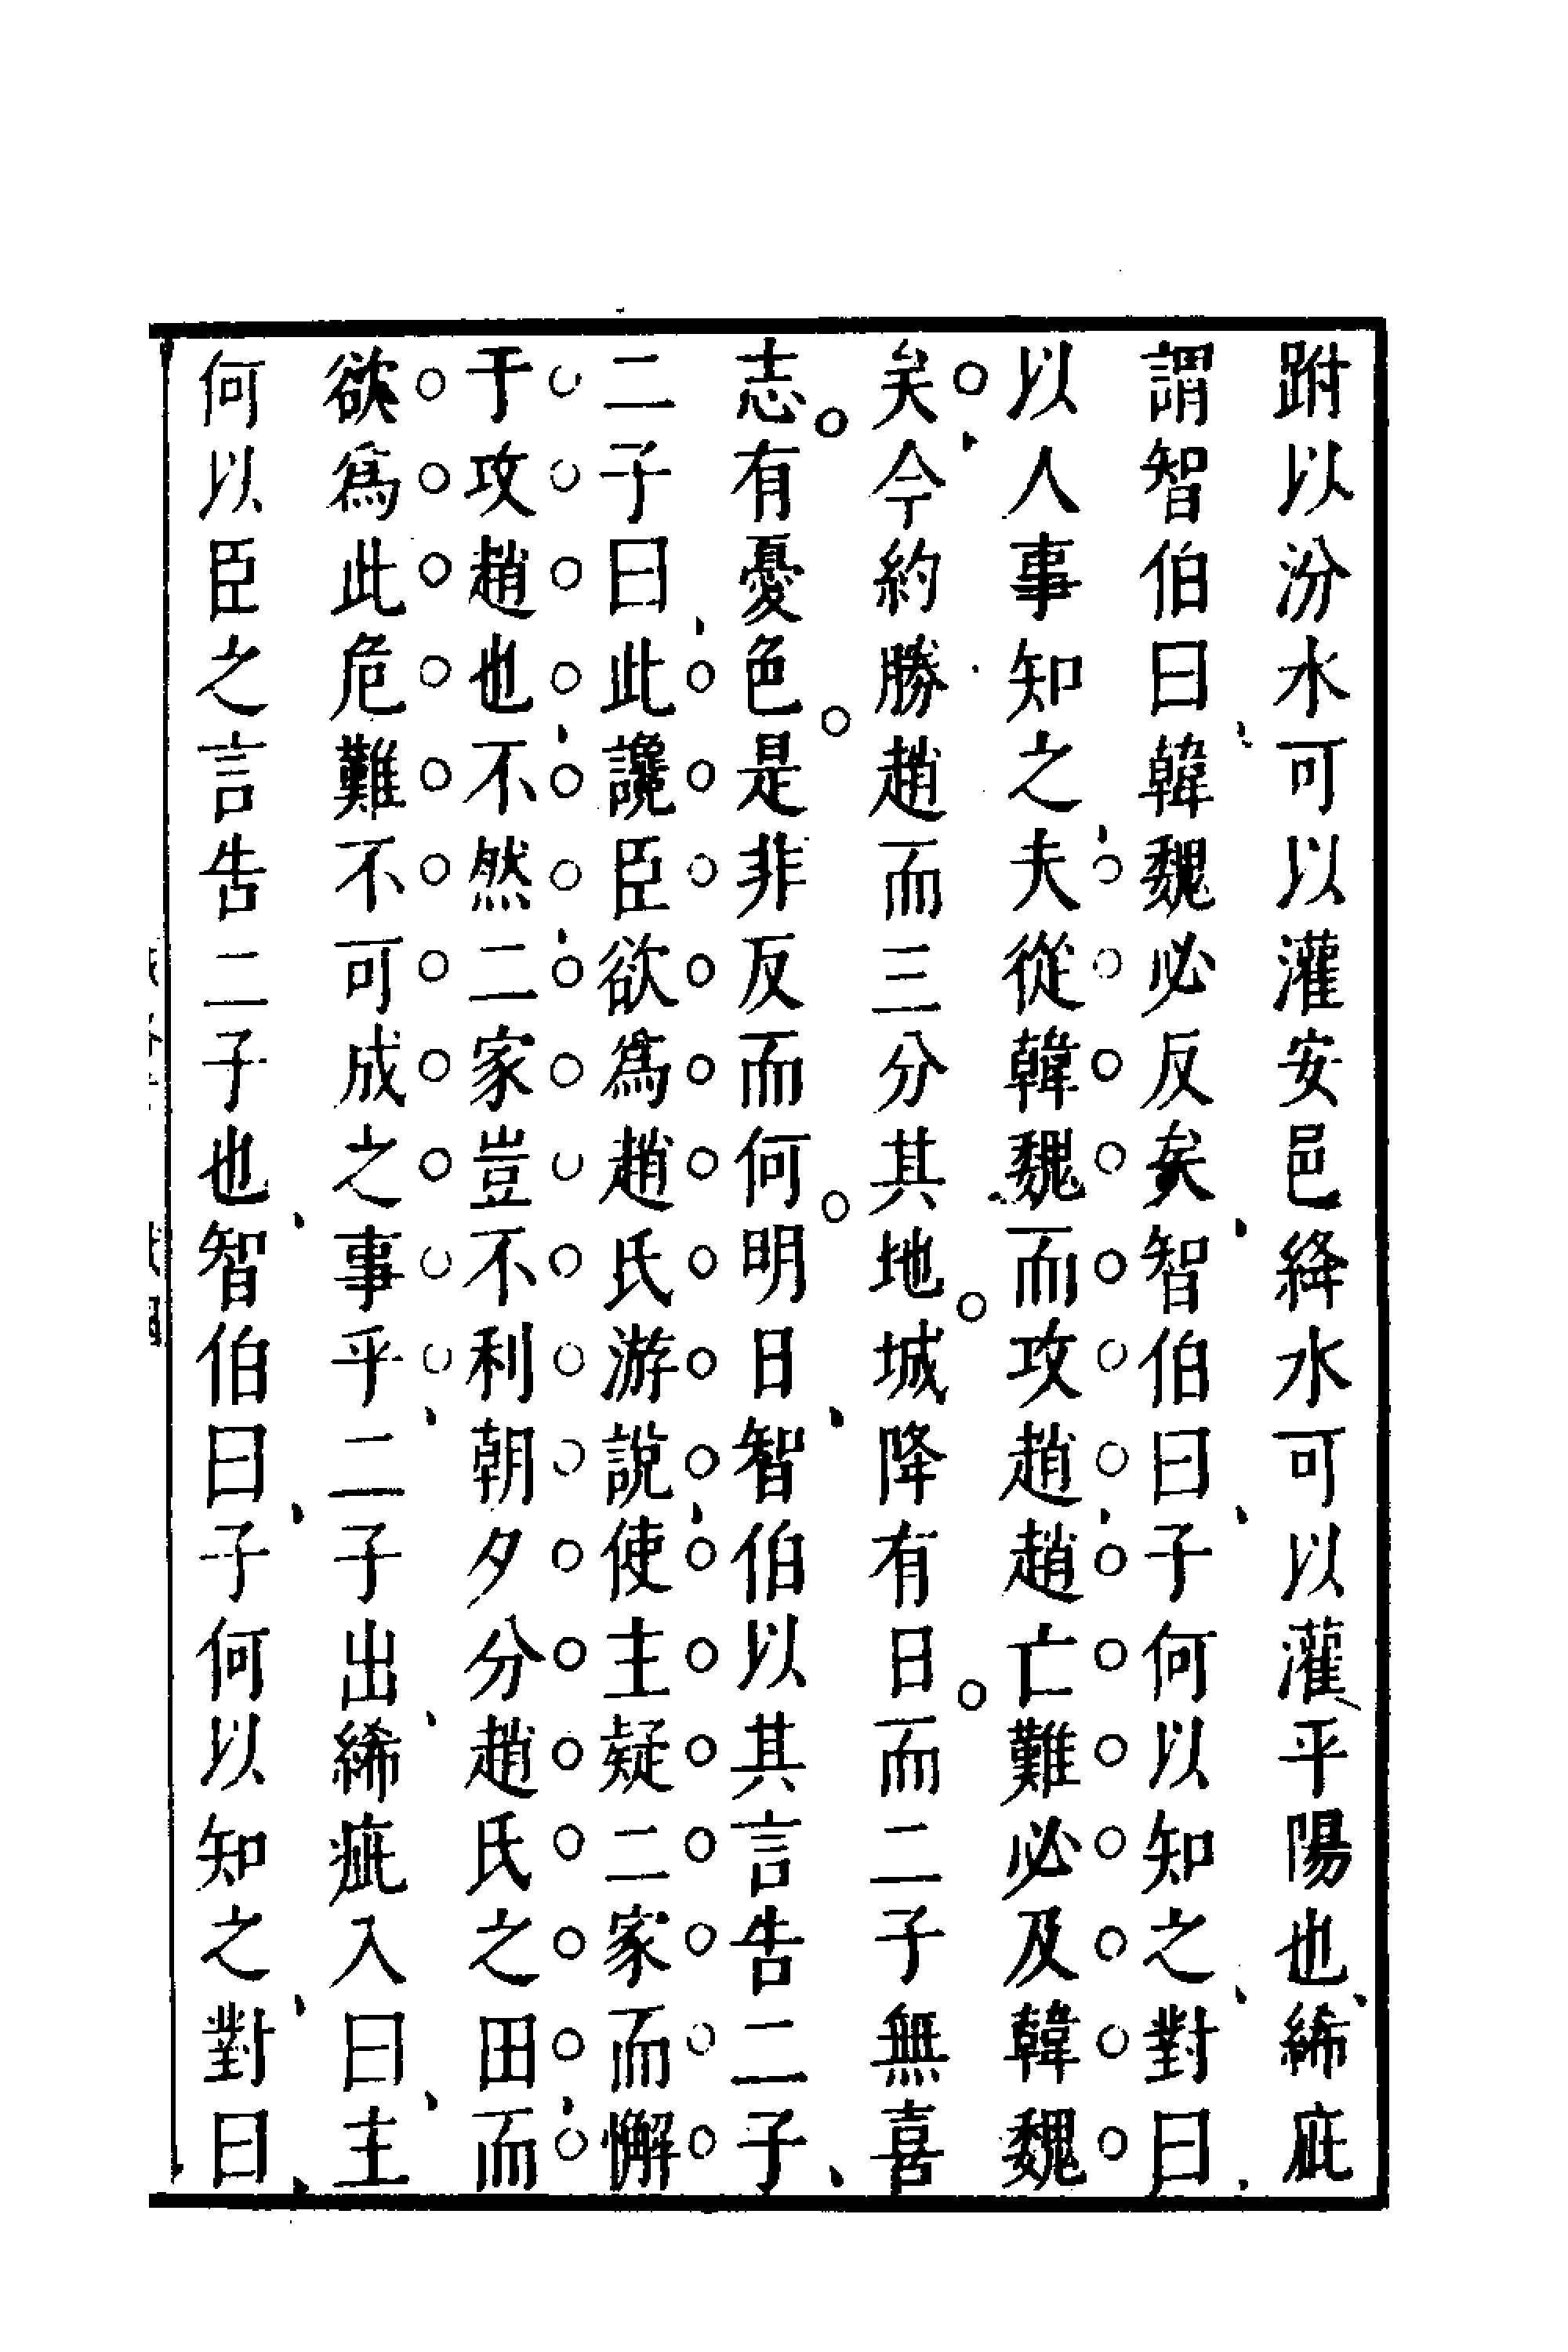 跗以汾水可以灌安邑絳水可以灌平陽也絺疵
謂智伯曰韓魏必反矣智伯曰子何以知之對曰
以人事知之夫從韓魏而攻趙趙亡難必及韓魏
矣今約勝趙而三分其地城降有日而二子無喜
志有憂色是非反而何明日智伯以其言告二子
二子曰此讒臣欲爲趙氏游說使主疑二家而懈
于攻趙也不然二家豈不利朝夕分趙氏之田而
欲爲此危難不可成之事乎二子出絺疵入曰主
何以臣之言告二子也智伯曰子何以知之對曰